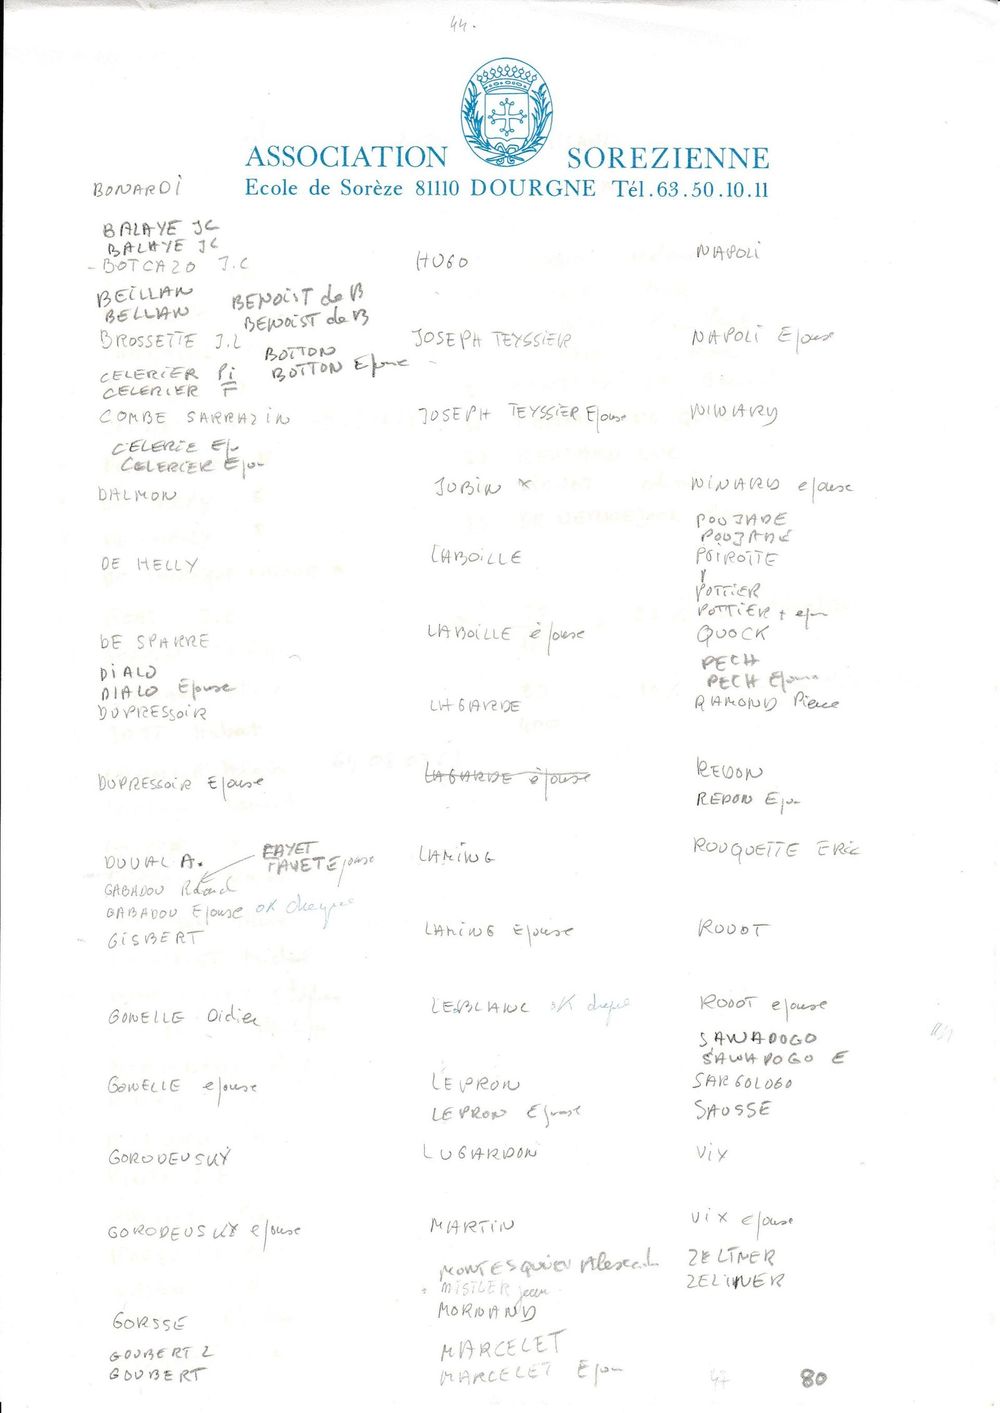 44.
ASSOCIATION SOREZIENNE
Ecole de Sorèze 81110 DOURGNE Tél.63.50.10.11
BONARDI
BALAYE JC
BALAYE JC
- BOTCAZO J.C
BEILLAN
BELLAN
BENOIST de B
BENOIST de B
BROSSETTE J.L
BOTTON
BOTTON Epouse
CELERIER Pi
CELERIER F
COMBE SARRAZIN
CELERIE Ep
CELERIER Epou
DALMON
DE HELLY
DE SPARRE
DIALO
DIALO Epouse
DUPRESSOIR
DUPRESSOIR Epouse
DUVAL A.
FAYET
FAYET Epouse
GABADOU Roland
GABADOU Epouse OK cheque
GISBERT
GONELLE Didier
GONELLE epouse
GORODEUSKY
GORODEUSKY epouse
GORSSE
GOUBERT L
GOUBERT
HUGO
JOSEPH TEYSSIER
JOSEPH TEYSSIER Epouse
JUBIN *
LABOILLE
LABOILLE épouse
LAGARDE
LAGARDE épouse
LAMING
LAMING Epouse
LEBLANC OK cheque
LEPRON
LEPRON Epouse
LUGARDON
MARTIN
MONTESQUIEU
MISTLER jean
MORNAND
MARCELET
MARCELET Epou
NAPOLI
NAPOLI Epouse
NINARD
NINARD epouse
POUJADE
POUJADE
POIROTTE
POTTIER
POTTIER + epou
QUOCK
PECH
PECH Epouse
RAMOND Pierre
REDON
REDON Epou
ROUQUETTE Eric
ROUOT
ROUOT epouse
SAWADOGO
SAWADOGO E
SARGOLOGO
SAUSSE
VIX
VIX epouse
ZELTNER
ZELTNER
47
80